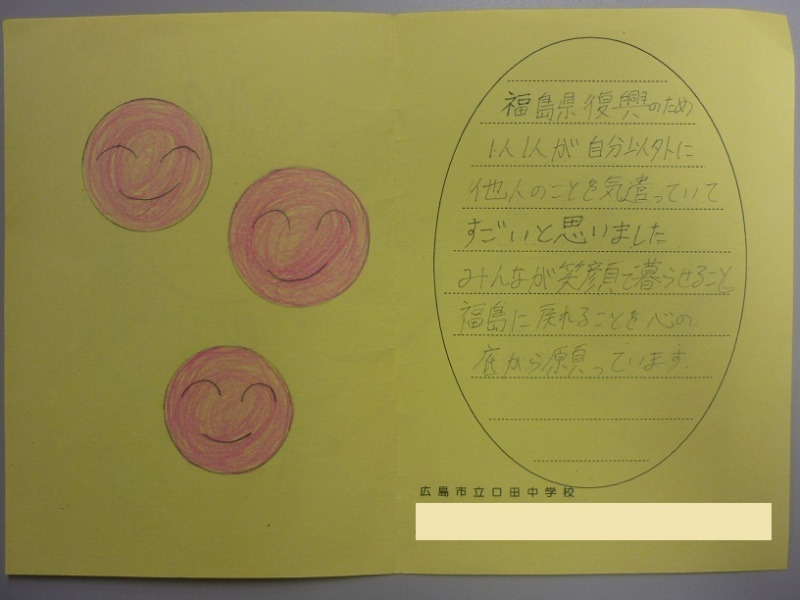 福島県復興のため
1人1人が自分以外に
他人のことを気遣っていて
すごいと思いました
みんなが笑顔で暮らせること
福島に戻れることを心の
底から願っています。
広島市立口田中学校